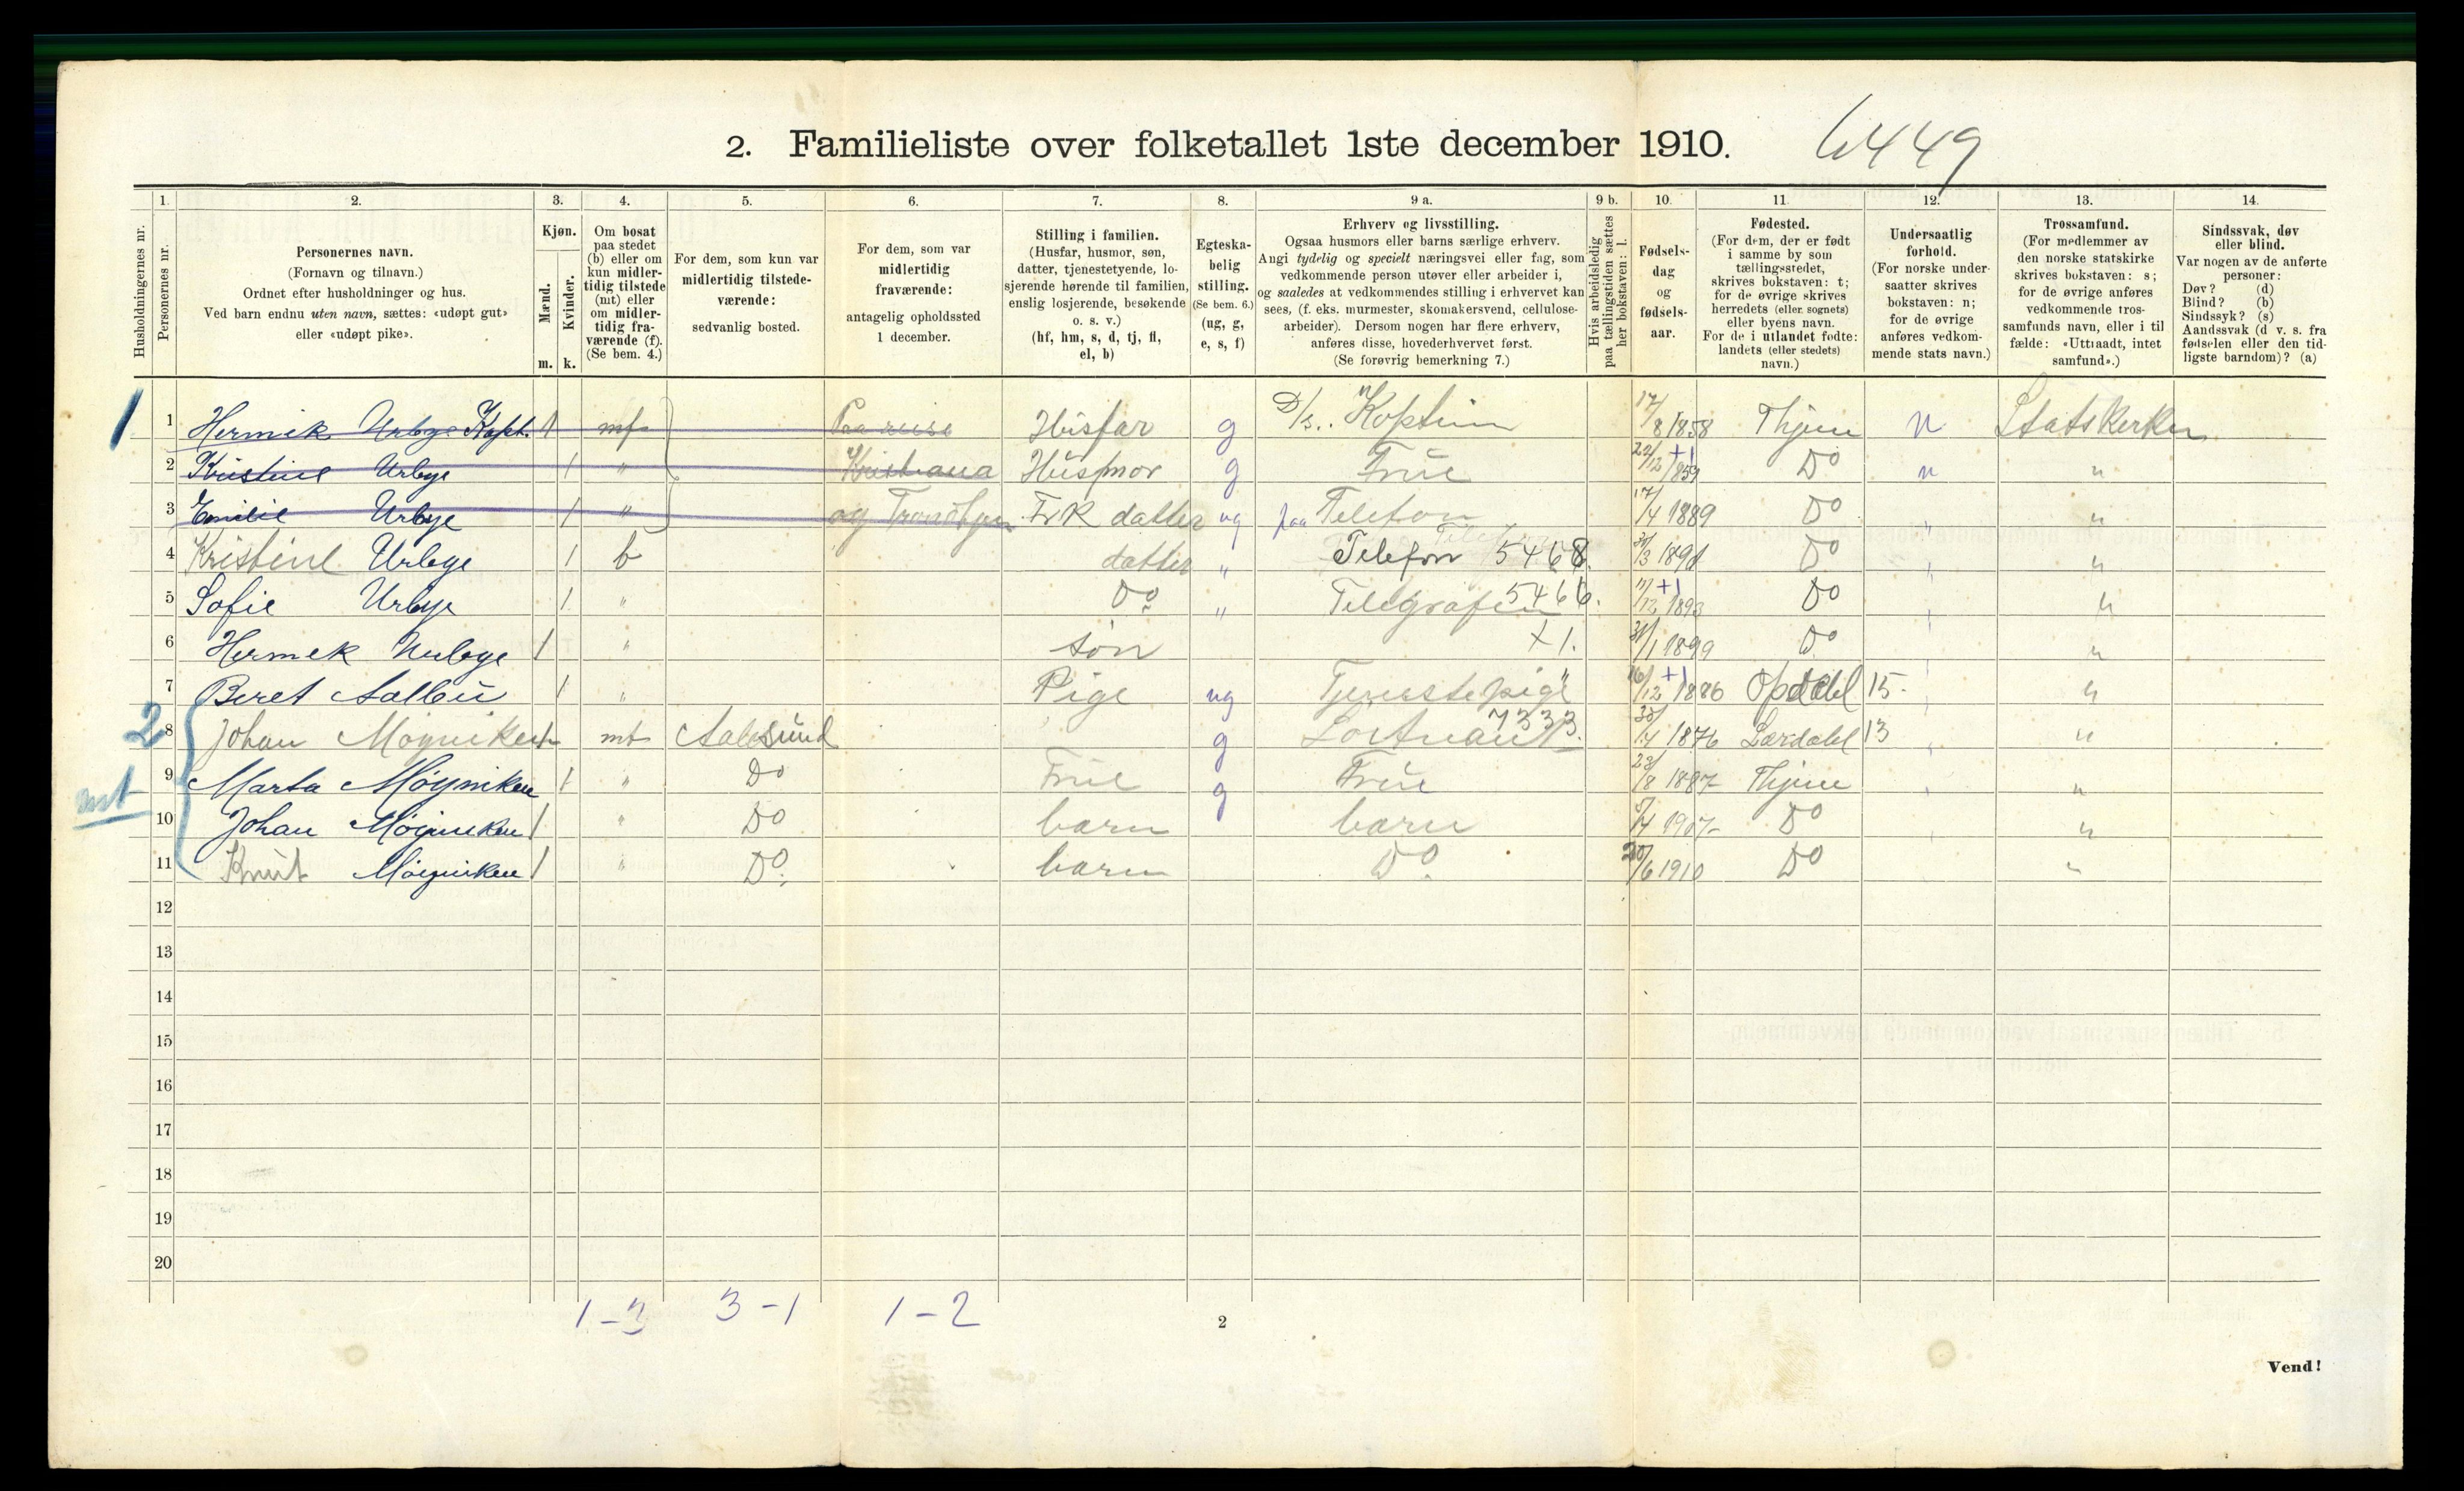 2. Familieliste over folketallet 1ste december 1910. 6449
Husholdningernes nr.
1. Personernes nr.
2. Personernes navn. (Fornavn og tilnavn.) Ordnet efter husholdninger og hus. Ved barn endnu uten navn, sættes: «udøpt gut» eller «udøpt pike».
3. Kjøn. Mænd. m. Kvinder. k.
4. Om bosat paa stedet (b) eller om kun midler-tidig tilstede (mt) eller om midler-tidig fra-værende (f). (Se bem. 4.)
5. For dem, som kun var midlertidig tilstede-værende: sedvanlig bosted.
6. For dem, som var midlertidig fraværende: antagelig opholdssted 1 december.
7. Stilling i familien. (Husfar, husmor, søn, datter, tjenestetyende, lo-sjerende hørende til familien, enslig losjerende, besøkende o. s. v.) (hf, hm, s, d, tj, fl, el, b)
8. Egteska-belig stilling. (Se bem. 6.) (ug, g, e, s, f)
9 a. Erhverv og livsstilling. Ogsaa husmors eller barns særlige erhverv. Angi tydelig og specielt næringsvei eller fag, som vedkommende person utøver eller arbeider i, og saaledes at vedkommendes stilling i erhvervet kan sees, (f. eks. murmester, skomakersvend, cellulose-arbeider). Dersom nogen har flere erhverv, anføres disse, hovederhvervet først. (Se forøvrig bemerkning 7.)
9 b. Hvis arbeidsledig paa tællingstiden sættes her bokstaven: l.
10. Fødsels-dag og fødsels-aar.
11. Fødested. (For dem, der er født i samme by som tællingsstedet, skrives bokstaven: t; for de øvrige skrives herredets (eller sognets) eller byens navn. For de i utlandet fødte: landets (eller stedets) navn.)
12. Undersaatlig forhold. (For norske under-saatter skrives bokstaven: n; for de øvrige anføres vedkom-mende stats navn.)
13. Trossamfund. (For medlemmer av den norske statskirke skrives bokstaven: s; for de øvrige anføres vedkommende tros-samfunds navn, eller i til fælde: «Uttraadt, intet samfund».)
14. Sindssvak, døv eller blind. Var nogen av de anførte personer: Døv? (d) Blind? (b) Sindssyk? (s) Aandssvak (d v. s. fra fødselen eller den tid-ligste barndom)? (a)
1 1 Hermik Urbye Kapt. 1 mf Paa reise Husfar g D/s. Koptein 17/8 1858 Thjem n Statskerken
2 Kristine Urbye 1 " Kristiana Husmor g Frue 22/12 +1 1859 Do n "
3 Emilie Urbye 1 " og Trondhjem Frk datter ug paa Telefon 17/4 1889 Do " "
4 Kristine Urbye 1 b datter " Telefon 5468. /3 1891 Do " "
5 Sofie Urbye 1 " Do " Telegrafen 5466. 11/12 +1 1893 Do " "
6 Hermek Urbye 1 " søn +1. 31/1 1899 Do " "
7 Beret Aalbu 1 " Pige ug Tjenestepige 16/12 +1 1886 Opdahl 15. " "
2 8 Johan Møyniken 1 mt Aalesund g Loitnant 7333. 30/4 1876 Lærdahl 13 " "
mt 9 Marta Møyniken 1 " Do Frue g Frue 23/8 1887 Thjem " "
10 Johan Møyniken 1 " Do barn barn /4 1907 Do " "
11 Knut Møyniken 1 " Do. barn Do. 20/6 1910 Do "
12
13
14
15
16
17
18
19
20
1-3 3-1 1-2
2
Vend!